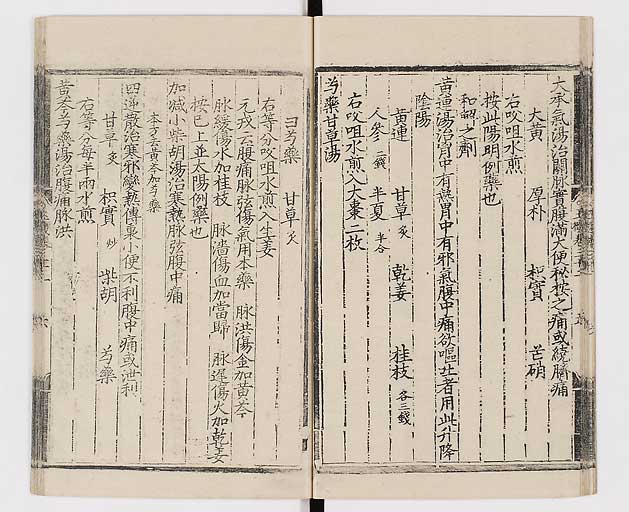 大承氣湯治關脉實腹滿大便秘按之痛或繞臍痛
大黃 厚朴 枳實 芒硝
右㕮咀水煎
按此陽明例藥也
和解之劑
黃連湯治胷中有熱胃中有邪氣腹中痛欲嘔吐者用此升降
陰陽
黃連 甘草炙 乾姜 桂枝各三錢
人參二錢 半夏半合
右㕮咀水煎入大棗二枚
芍藥甘草湯
白芍藥 甘草炙
右等分㕮咀水煎入生姜
元戎云腹痛脉弦傷氣用本藥 脉洪傷金加黃芩
脉緩傷水加桂枝 脉濇傷血加當歸 脉遲傷火加乾姜
按已上並太陽例藥也
加减小柴胡湯治寒熱脉弦腹中痛
本方去黃芩加芍藥
四逆散治寒邪變熱傳裏小便不利腹中痛或泄利
甘草炙 枳實炒 柴胡 芍藥
右等分每半兩水煎
黃芩芍藥湯治腹痛脉洪